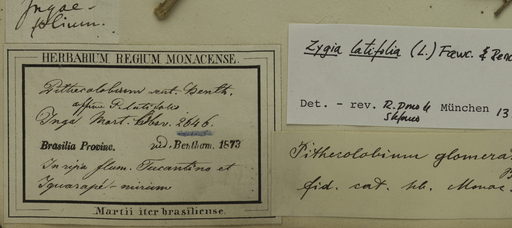 Ingae-
folium.
HERBARIUM REGIUM MONACENSE.
Pithecolobium aut. Benth.
affine P. latifolio
Inga Mart. Obsv. 2646.
Brasilia Provinc. vid. Bentham. 1873
In ripa flum. Tuccantins et
Iguarapé-mirim
Martii iter brasiliense.
Zygia latifolia (L.) Fawc. & Rend
Det. - rev. München 13
Pithecolobium glomera
fid. cat. hb. Monac.